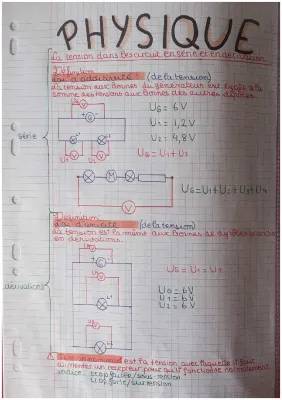 PHYSIQUE
La tension dans les circuit en série et en dérivation
Définition
Loi d'additivité (de la tension)
La tension aux bornes du générateur est égale à la
somme des tensions aux bornes des autres dipôles.
UG = 6V
U1 = 1,2V
U2 = 4,8V
série
UG = U1 + U2
V
UG = U1 + U2 + U3 + U4
V
Définition
Loi d'unicité (de la tension)
La tension est la même aux bornes de dipôles branchés
en dérivations.
UG = U1 = U2
UG = 6V
U1 = 6V
U2 = 6V
dérivation
est la tension avec laquelle il faut
alimenter un recepteur pour qu'il fonctionne normalement
indice: trop faible/sous-tension
trop forte/surtension